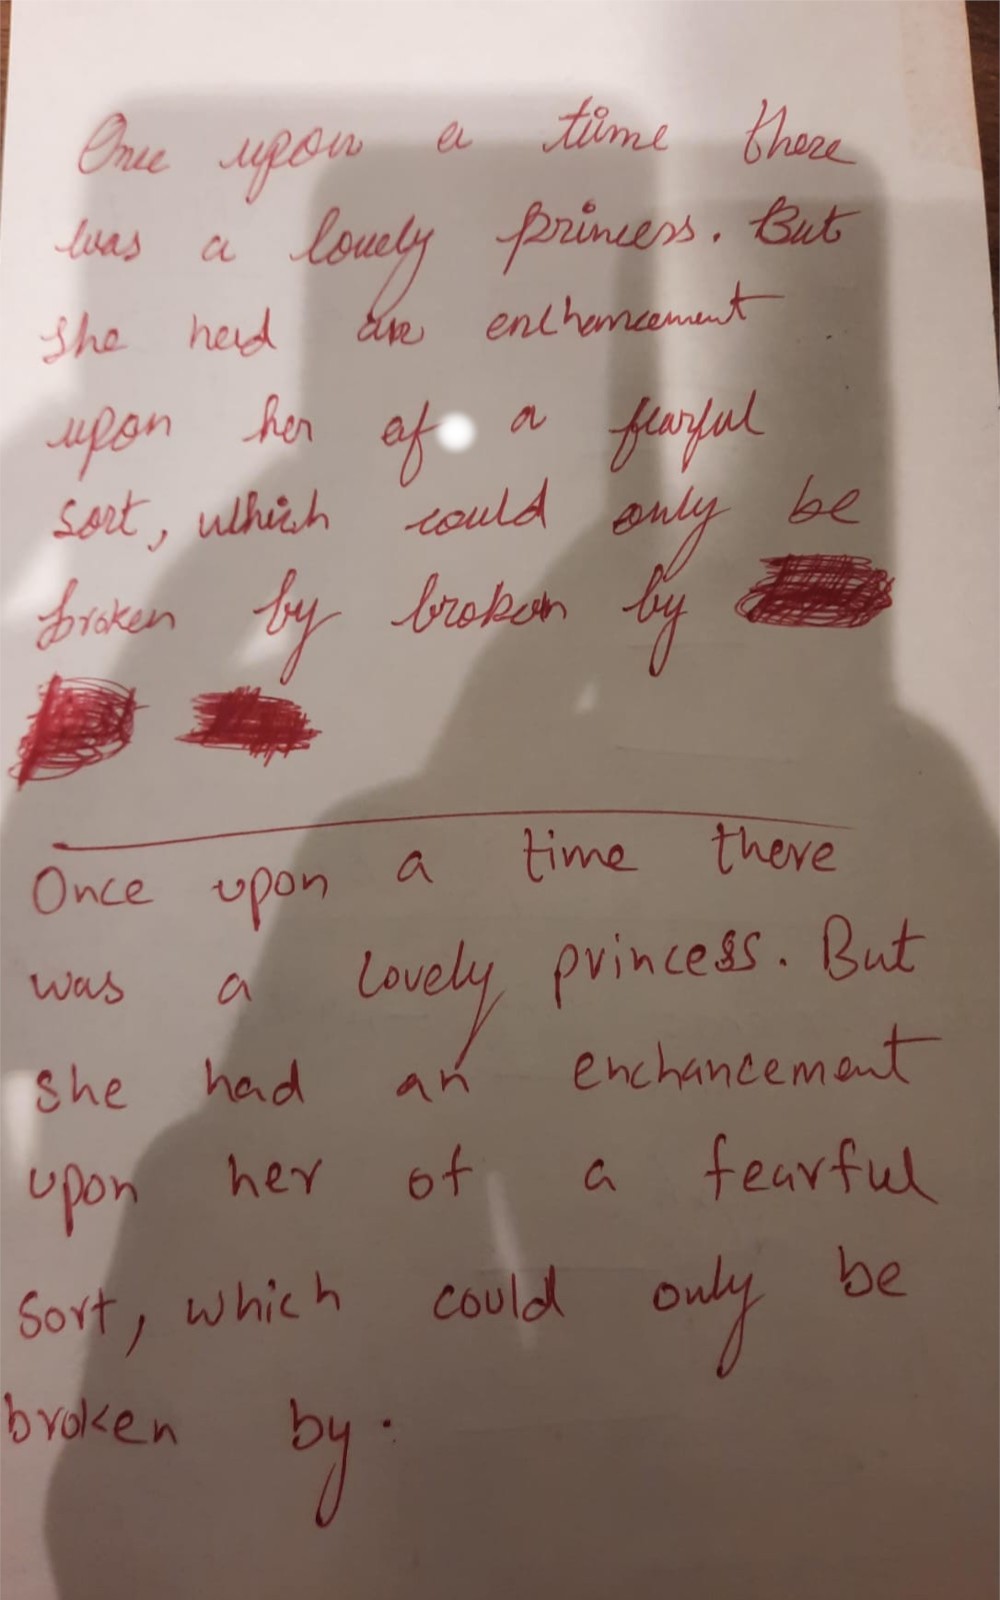 Once upon a time there
was a lovely princess. But
she had an enchancement
upon her of a fearful
sort, which could only be
broken by broken by
Once upon a time there
was a lovely princess. But
she had an enchancement
upon her of a fearful
sort, which could only be
broken by.